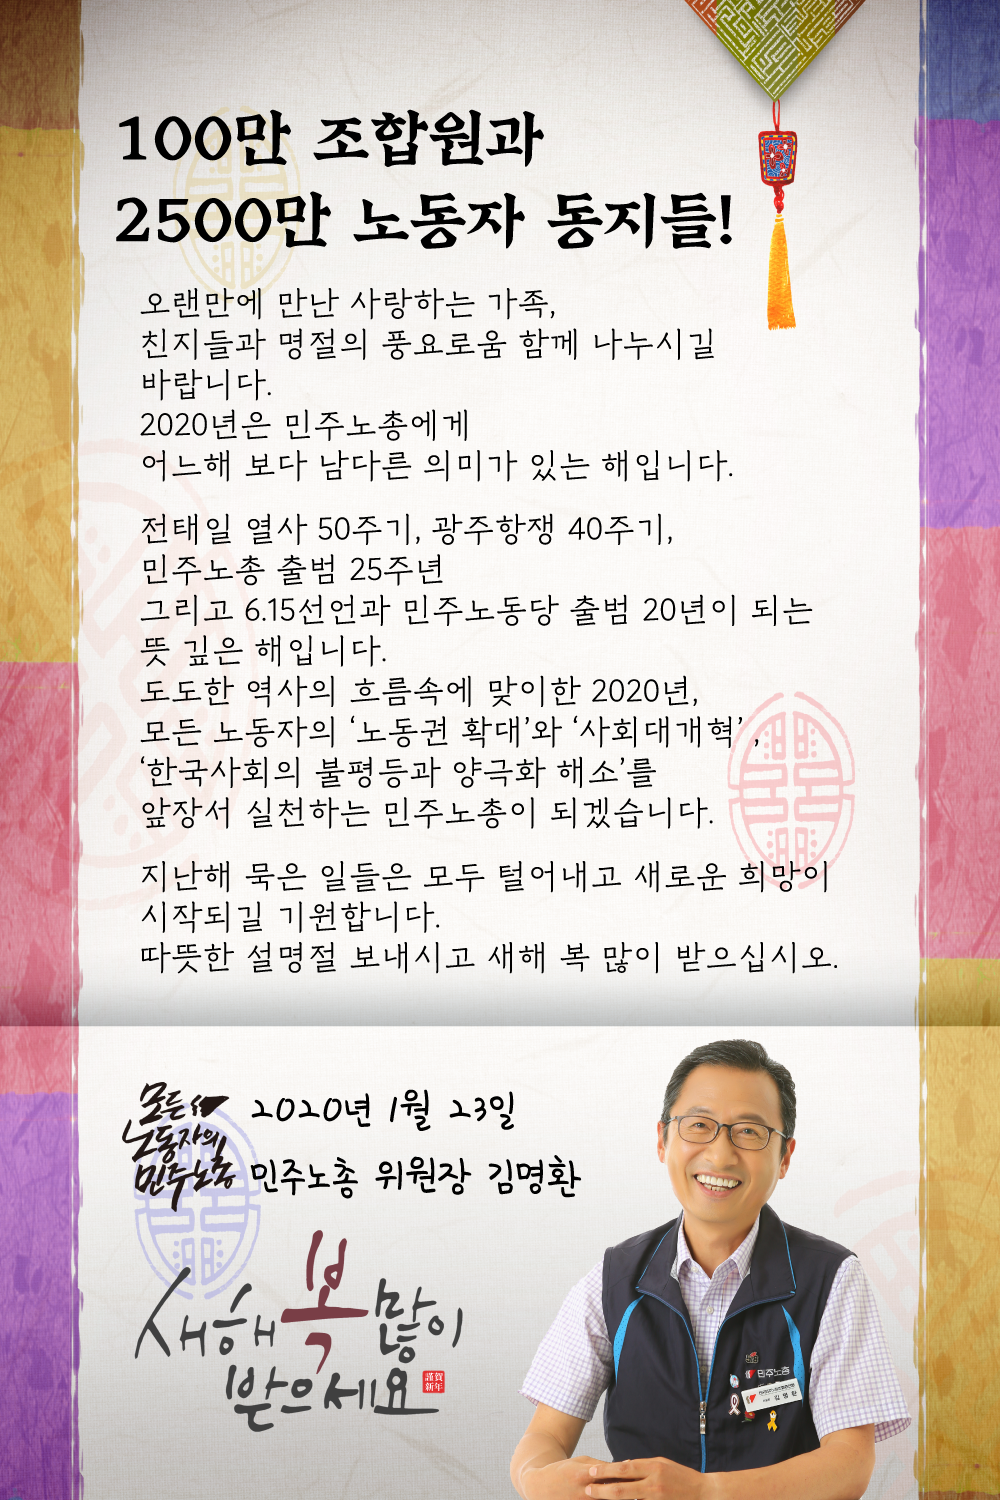 100만 조합원과
2500만 노동자 동지들!
오랜만에 만난 사랑하는 가족,
친지들과 명절의 풍요로움 함께 나누시길
바랍니다.
2020년은 민주노총에게
어느해 보다 남다른 의미가 있는 해입니다.
전태일 열사 50주기, 광주항쟁 40주기,
민주노총 출범 25주년
그리고 6.15선언과 민주노동당 출범 20년이 되는
뜻 깊은 해입니다.
도도한 역사의 흐름속에 맞이한 2020년,
모든 노동자의 ‘노동권 확대’와 ‘사회대개혁’ ,
‘한국사회의 불평등과 양극화 해소’를
앞장서 실천하는 민주노총이 되겠습니다.
지난해 묵은 일들은 모두 털어내고 새로운 희망이
시작되길 기원합니다.
따뜻한 설명절 보내시고 새해 복 많이 받으십시오.
모든
노동자의
민주노총
2020년 1월 23일
민주노총 위원장 김명환
새해 복 많이
받으세요
謹賀
新年
민주노총
김명환